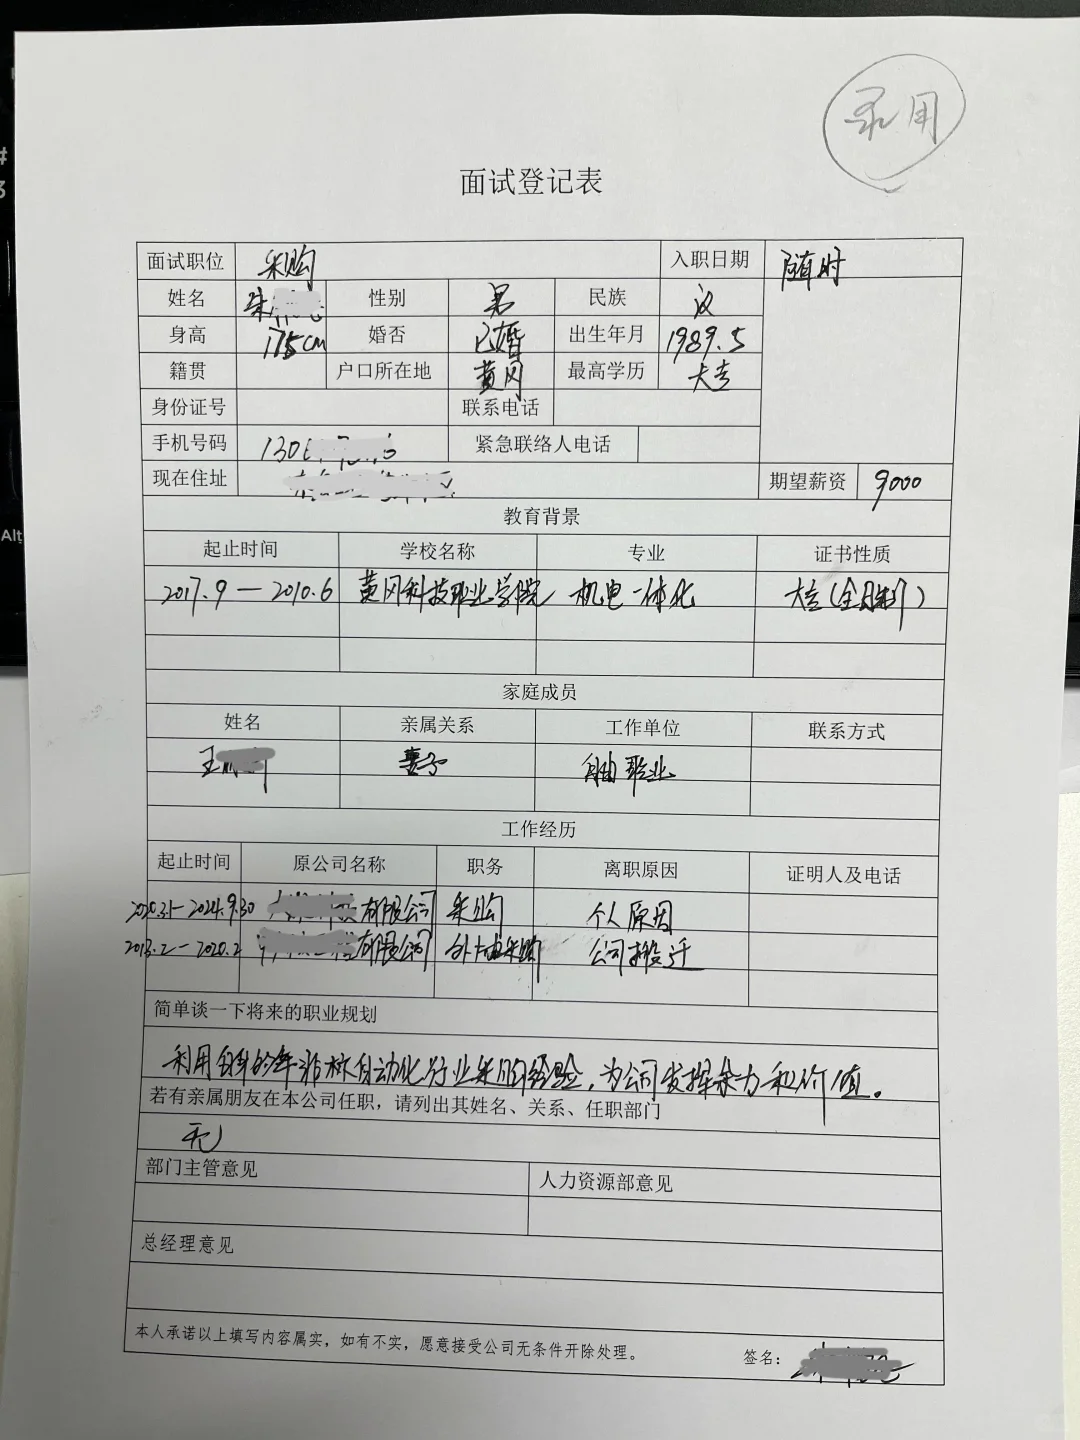 录用
面试登记表
面试职位 采购 入职日期 随时
姓名 朱 性别 男 民族 汉
身高 175cm 婚否 已婚 出生年月 1989.5
籍贯 户口所在地 黄冈 最高学历 大专
身份证号 联系电话
手机号码 130 紧急联络人电话
现在住址 期望薪资 9000
教育背景
起止时间 学校名称 专业 证书性质
2017.9—2010.6 黄冈科技职业学院 机电一体化 大专(全日制)
家庭成员
姓名 亲属关系 工作单位 联系方式
王 妻子 自由职业
工作经历
起止时间 原公司名称 职务 离职原因 证明人及电话
2020.3.1—2024.9.30 有限公司 采购 个人原因
2013.2—2020.2 有限公司 外协采购 公司搬迁
简单谈一下将来的职业规划
利用自身的 年非标自动化行业采购经验,为公司发挥余力和价值。
若有亲属朋友在本公司任职，请列出其姓名、关系、任职部门
无
部门主管意见 人力资源部意见
总经理意见
本人承诺以上填写内容属实，如有不实，愿意接受公司无条件开除处理。 签名：
#
3
Alt